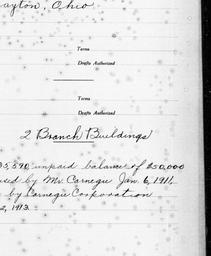 ayton, Ohio
Terms
Drafts Authorized
Terms
Drafts Authorized
2 Branch Buildings
35,590 unpaid balance of 250,000
used by Mr. Carnegie Jan. 6, 1911,
by Carnegie Corporation
2, 1913